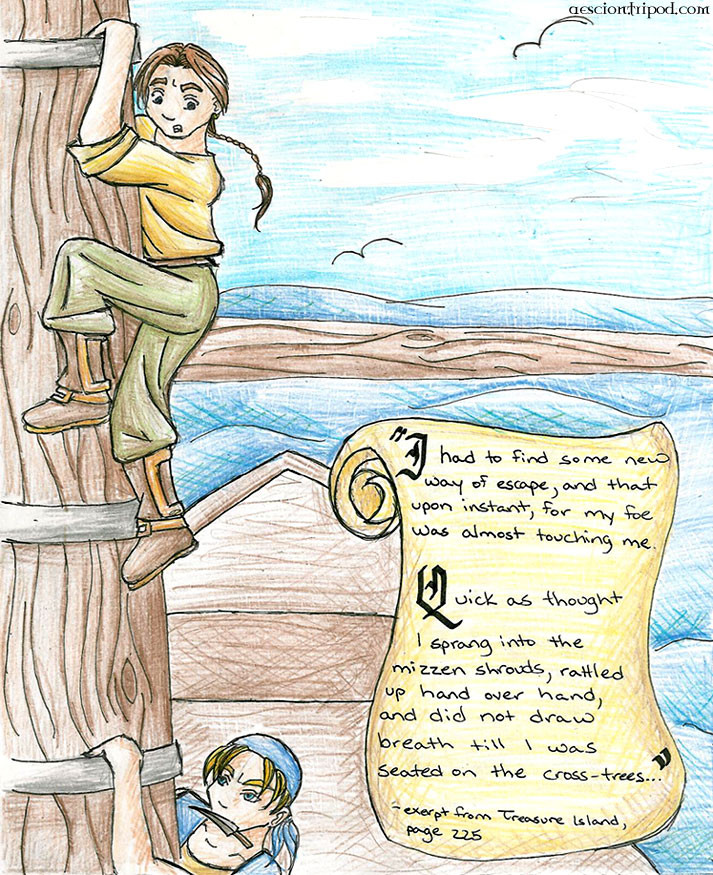 aescion.tripod.com
"I had to find some new
way of escape, and that
upon instant, for my foe
was almost touching me.
Quick as thought
I sprang into the
mizzen shrouds, rattled
up hand over hand,
and did not draw
breath till I was
seated on the cross-trees..."
- exerpt from Treasure Island,
page 225